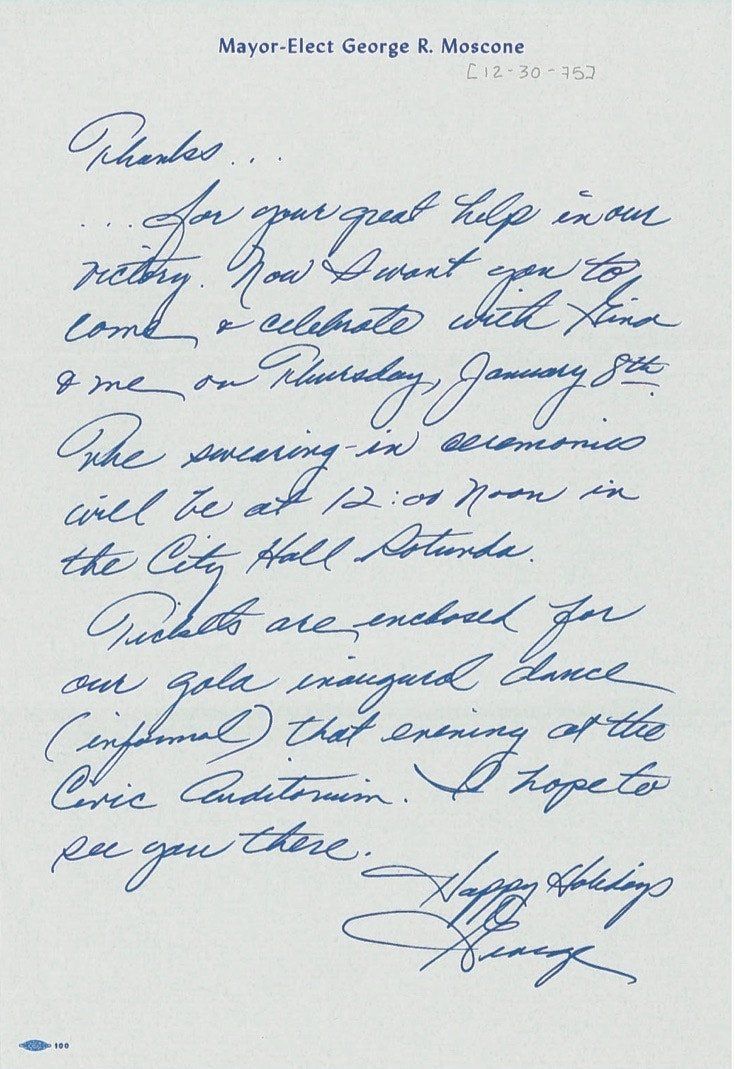 Mayor-Elect George R. Moscone
[12-30-75]
Thanks...
...for your great help in our
victory. Now I want you to
come & celebrate with Gina
& me on Thursday, January 8th.
The swearing-in ceremonies
will be at 12:00 Noon in
the City Hall Rotunda.
Tickets are enclosed for
our gala inaugural dance
(informal) that evening at the
Civic Auditorium. I hope to
see you there.
Happy Holidays
George
100